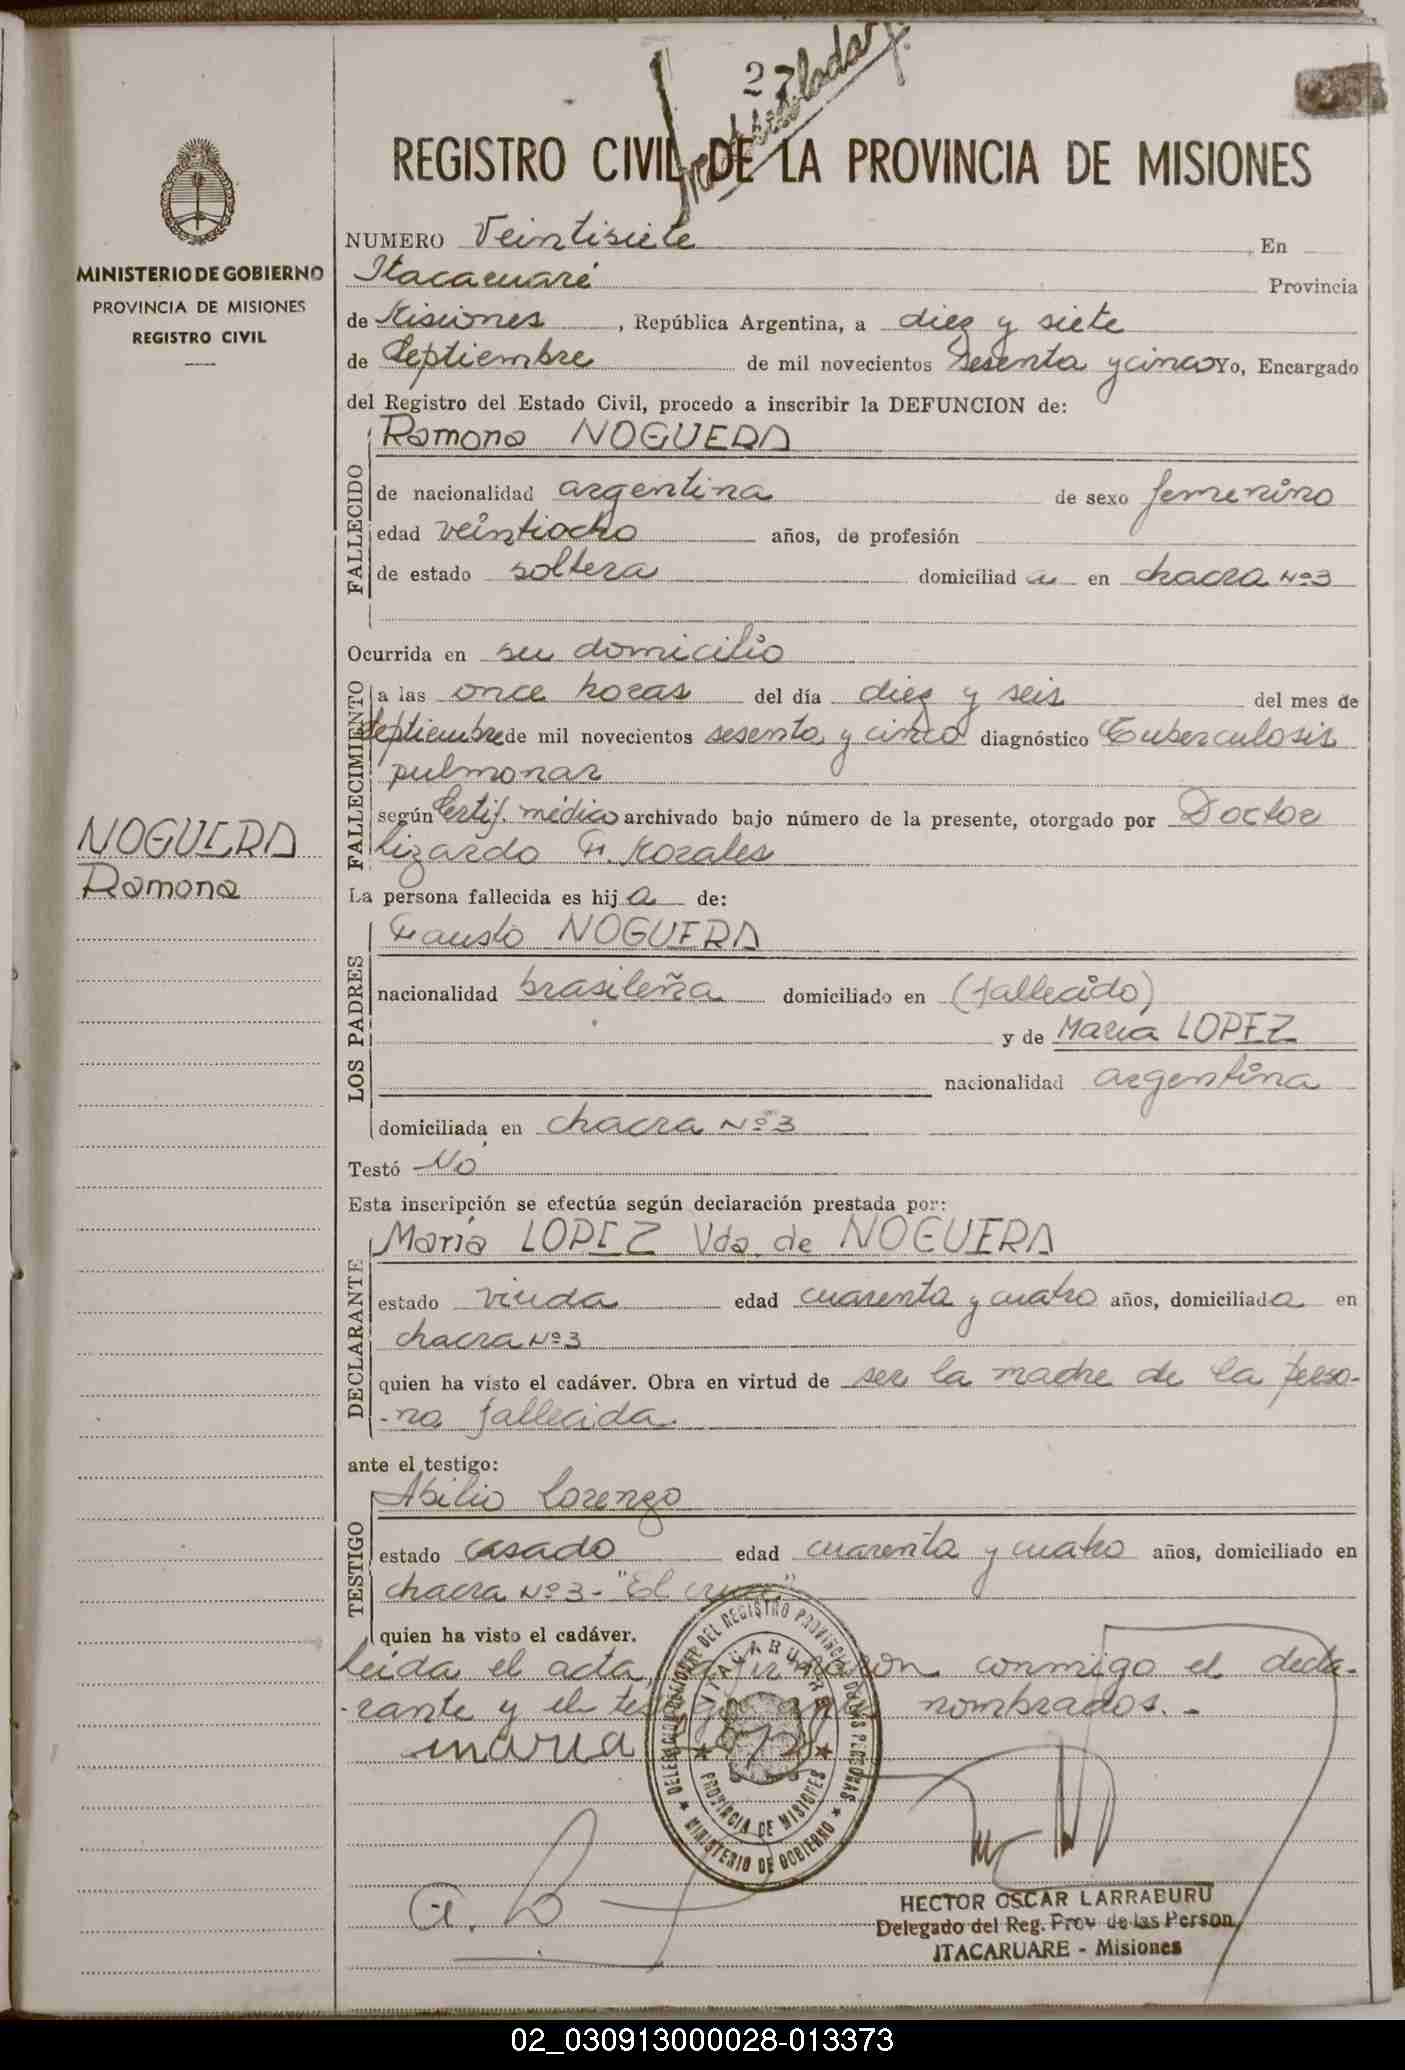 27
REGISTRO CIVIL DE LA PROVINCIA DE MISIONES
MINISTERIO DE GOBIERNO
PROVINCIA DE MISIONES
REGISTRO CIVIL
NUMERO Veintisiete En
Itacaruaré Provincia
de Misiones, República Argentina, a diez y siete
de Septiembre de mil novecientos sesenta y cinco Yo, Encargado
del Registro del Estado Civil, procedo a inscribir la DEFUNCION de:
FALLECIDO
Ramona NOGUERA
de nacionalidad argentina de sexo femenino
edad veintiocho años, de profesión
de estado soltera domiciliad a en chacra Nº3
Ocurrida en su domicilio
FALLECIMIENTO
a las once horas del día diez y seis del mes de
Septiembre de mil novecientos sesenta y cinco diagnóstico Tuberculosis
pulmonar
según Certif. médico archivado bajo número de la presente, otorgado por Doctor
Lizardo F. Morales
NOGUERA
Ramona
La persona fallecida es hij a de:
LOS PADRES
Fausto NOGUERA
nacionalidad brasileña domiciliado en (fallecido)
y de María LOPEZ
nacionalidad argentina
domiciliada en chacra Nº3
Testó No
Esta inscripción se efectúa según declaración prestada por:
DECLARANTE
María LOPEZ Vda. de NOGUERA
estado viuda edad cuarenta y cuatro años, domiciliada en
chacra Nº3
quien ha visto el cadáver. Obra en virtud de ser la madre de la perso-
-na fallecida.
ante el testigo:
TESTIGO
Abilio Lorenzo
estado casado edad cuarenta y cuatro años, domiciliado en
chacra Nº3- "El cruce"
quien ha visto el cadáver.
Leida el acta, la firmaron conmigo el decla-
-rante y el testigo nombrados.-
maria
DELEGACION DEL REGISTRO PROVINCIAL DE LAS PERSONAS
ITACARUARE
PROVINCIA DE MISIONES
MINISTERIO DE GOBIERNO
HECTOR OSCAR LARRABURU
Delegado del Reg. Prov de las Person.
ITACARUARE - Misiones
02_030913000028-013373